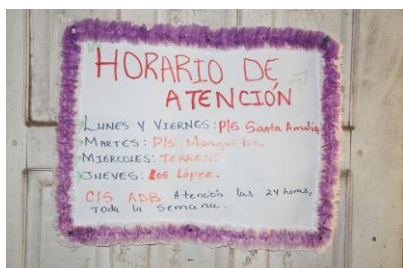 HORARIO DE
ATENCIÓN
LUNES Y VIERNES: P/S Santa Amalia
MARTES: P/S Manguitos.
MIERCOLES: TERRENO
JUEVES: Los López.
C/S ADB Atención las 24 horas,
Toda la Semana.